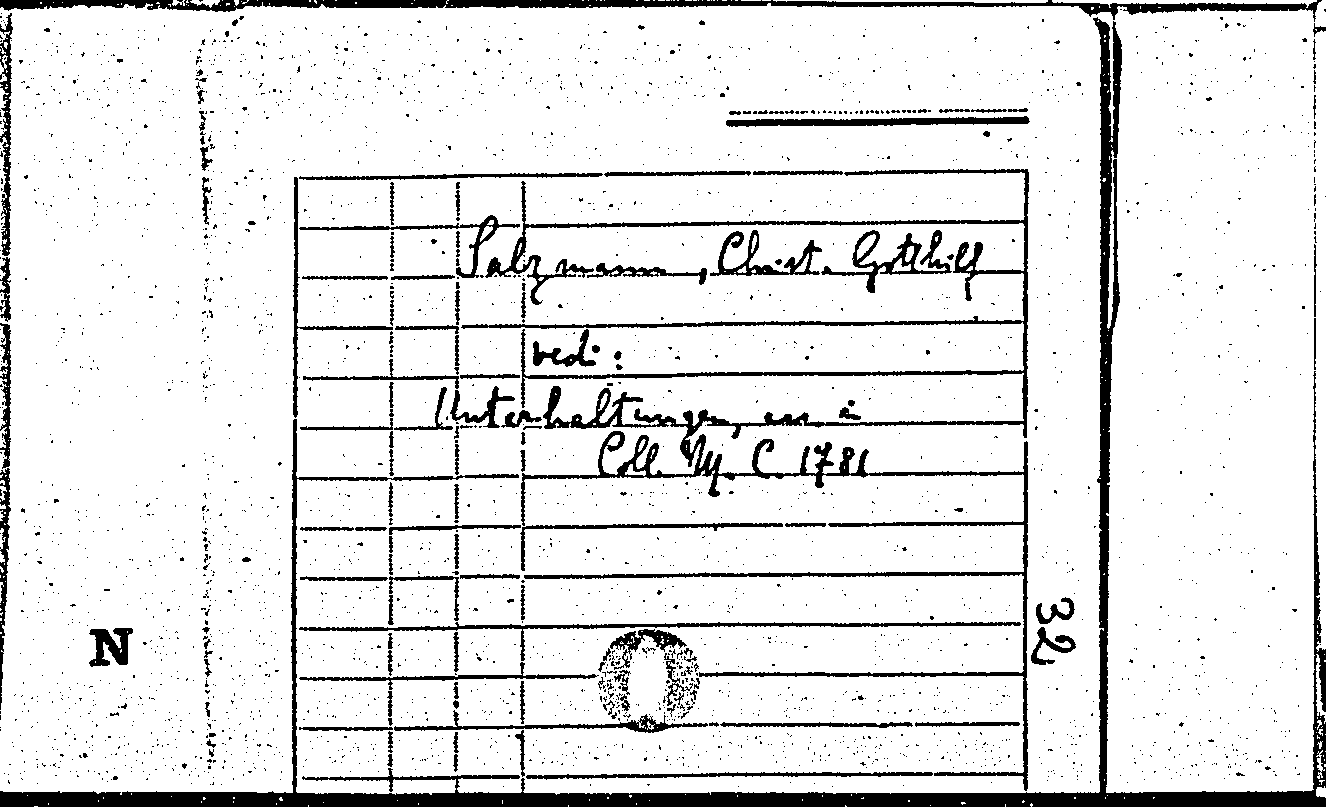 Salzmann, Christ. Gotthilf
vedi:
Unterhaltungen,
Coll. M. C. 1781
32
N